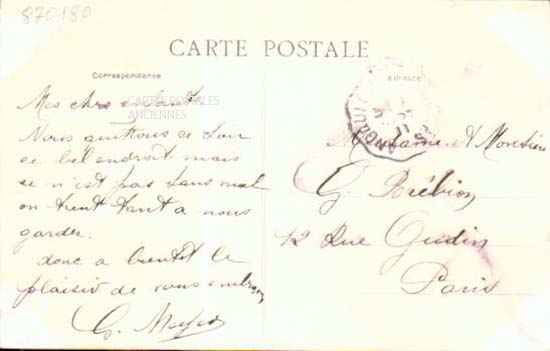 870180
CARTE POSTALE
Correspondance
Adresse
CARTES POSTALES
ANCIENNES
Mes chrs enfants
Nous quittons ce soir
ce bel endroit mais
se n'est pas sans mal
on tient tant a nous
garder.
donc a bientot le
plaisir de vous embrasser
G.
Madame et Monsieur
G. Brébion
12 Rue Gudin
Paris